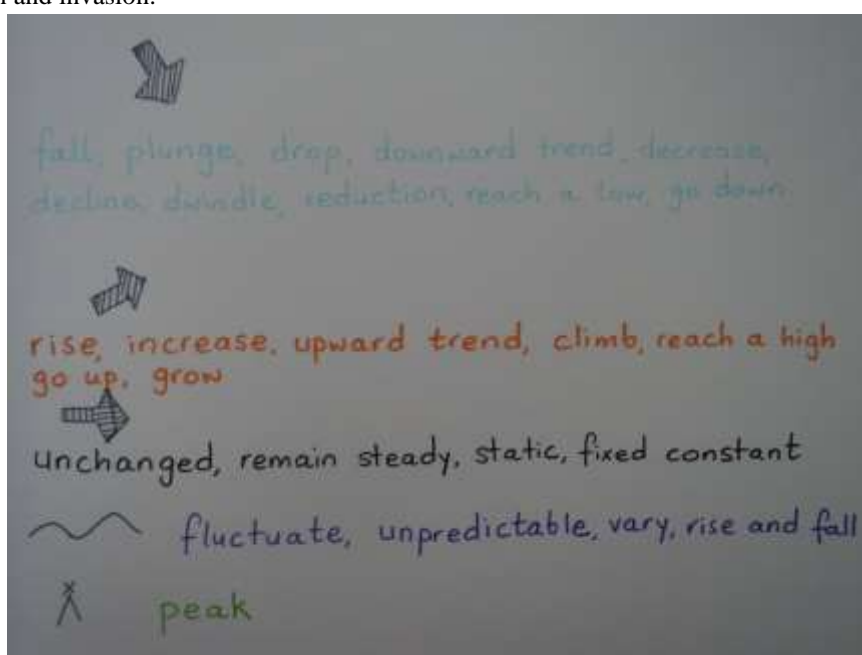 fall, plunge, drop, downward trend, decrease,
decline, dwindle, reduction, reach a low, go down
rise, increase, upward trend, climb, reach a high
go up, grow
unchanged, remain steady, static, fixed constant
fluctuate, unpredictable, vary, rise and fall
peak